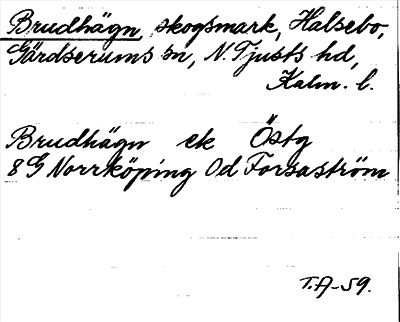 Brudhägn skogsmark, Halsebo,
Gärdserums sn, N. Tjusts hd,
Kalm. l.
Brudhägn ek Östg
8G Norrköping 0d Forsaström
T.A-59.